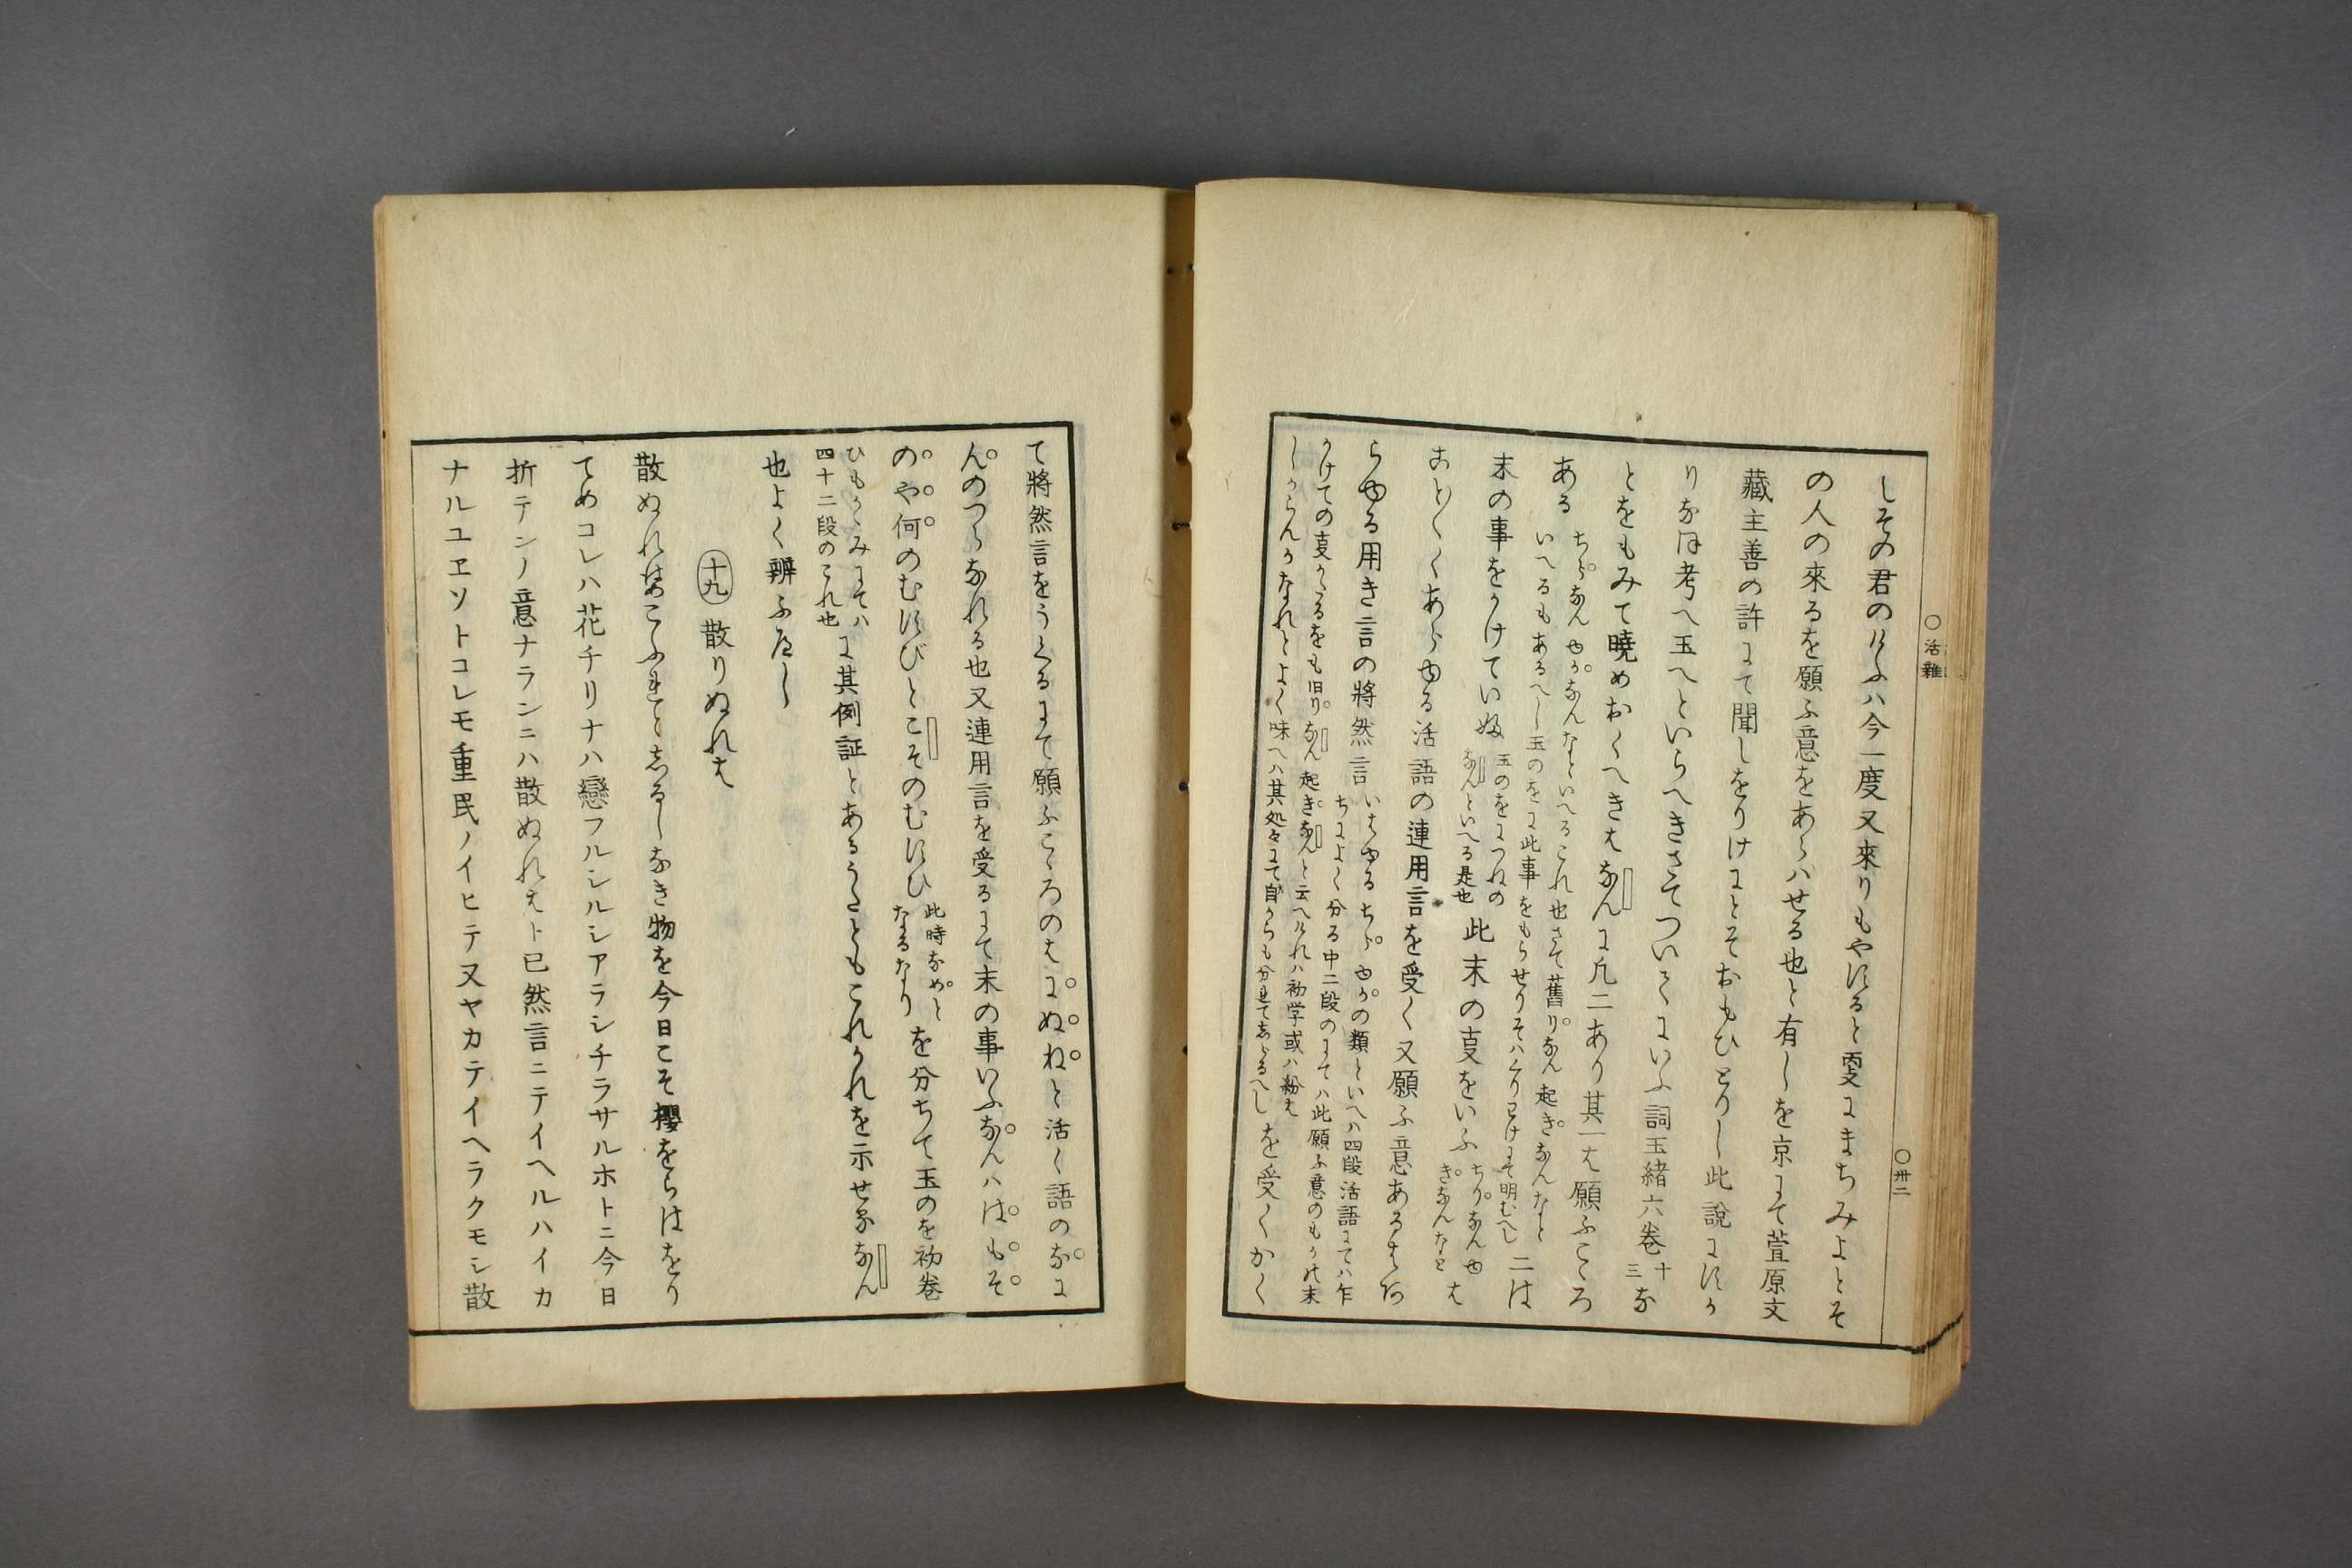 〇活雜
〇卅二
しその君のけふハ今一度又來りもやするとにまちみよとそ
の人の來るを願ふ意をあらハせる也と有しを京にて萱原文
藏主善の許にて聞しをりけにとそおもひとりし此說にすか
りなほ考へ玉へといらへきさてついてにいふ詞玉緖六卷十三な
とをもみて曉めおくへきはなんに凡二あり其一は願ふこゝろ
ある
ちらなんゆかなんなといへるこれ也さて舊りなん起きなんなと
いへるもあるへし玉のをに此事をもらせりそハくりわけにて明むへし
二は
末の事をかけていふ
玉のをにつねの
なんといへる是也
此末の事をいふ
ちりなんゆ
きなんなと
は
ことくくあらゆる活語の連用言を受く又願ふ意あるはあ
らゆる用き言の將然言
いはゆるちらゆかの類といへハ四段活語にてハ乍
ちによく分る中二段のにてハ此願ふ意のもか此末
かけての事かゝるをも旧りなん起きなんと云へけれハ初学或ハ紛は
しからんかなれとよく味へハ其処々にて自からも分れてしらるへし
を受くかく
て將然言をうくるにて願ふこゝろのはにぬねと活く語のなに
んのつらなれる也又連用言を受るにて末の事いふなんハはもそ
のや何のむすびとこそのむすひ
此時なめと
なるなり
を分ちて玉のを初卷
ひもかゝみにてハ
四十二段のこれ也
に其例証とあるうたともこれかれを示せるなん
也よく辨ふへし
十九 散りぬれは
散ぬれはこふれとしるしなき物を今日こそ櫻をらはをり
てめコレハ花チリナハ戀フルシルシアラシチラサルホトニ今日
折テンノ意ナランニハ散ぬれはト已然言ニテイヘルハイカ
ナルユヱソトコレモ重民ノイヒテ又ヤカテイヘラクモシ散